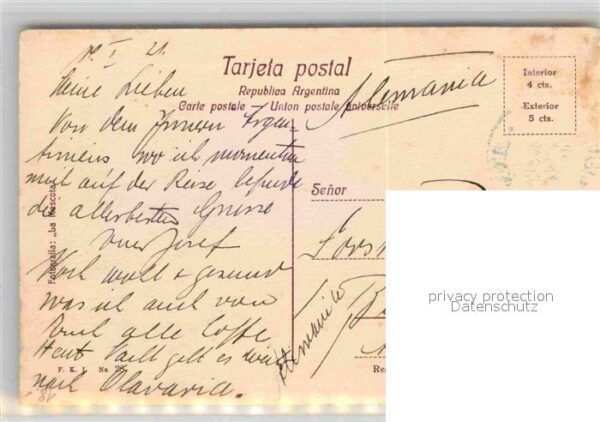 Tarjeta postal
Republica Argentina
Carte postale - Union postale universelle
Interior
4 cts.
Exterior
5 cts.
Alemania
Señor
Meine Lieben
Von dem Innern Argen
tiniens wo ich momentan
mich auf der Reise befinde
die allerbesten Grüsse
Euer Josef
Noch wohl & gesund
was ich auch von
Euch alle hoffe.
Heut Nacht geht es weiter
nach Olavarria.
Alemania
Fotografia: „La Mascota"
F. K. L. No 28.
privacy protection
Datenschutz